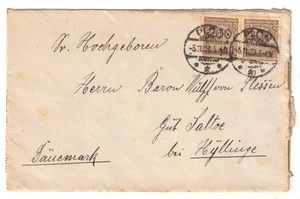 Sr. Hochgeboren
Herrn Baron Wulff von Plessen
Gut Saltoe
bei Hyllinge
Dänemark